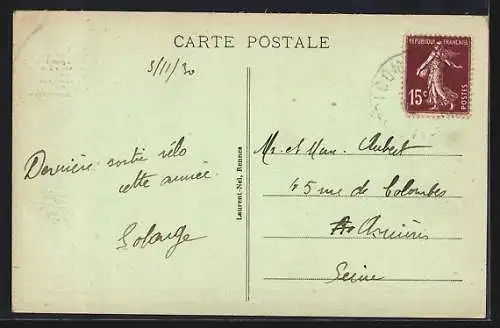 CARTE POSTALE
5/11/30
RÉPUBLIQUE FRANÇAISE
15c
POSTES
Dernière sortie vélo
cette année.
Solange
Laurent-Nel, Rennes
Mr. et Mme. Aubert
45 rue de Colombes
Asnières
Seine